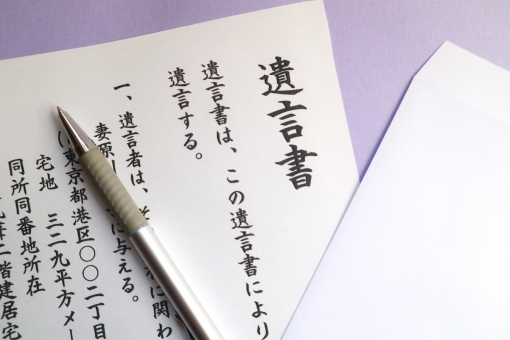 遺言書
遺言書は、この遺言書により
遺言する。
一、遺言者は、そ
に関わ
妻原
に与える。
東京都港区〇〇二丁目
宅地 三二九平方メー
同所同番地所在
階建居宅